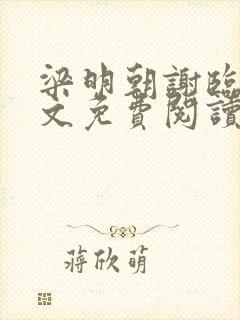 梁明朝謝臨
文免費閱讀
蔣欣萌